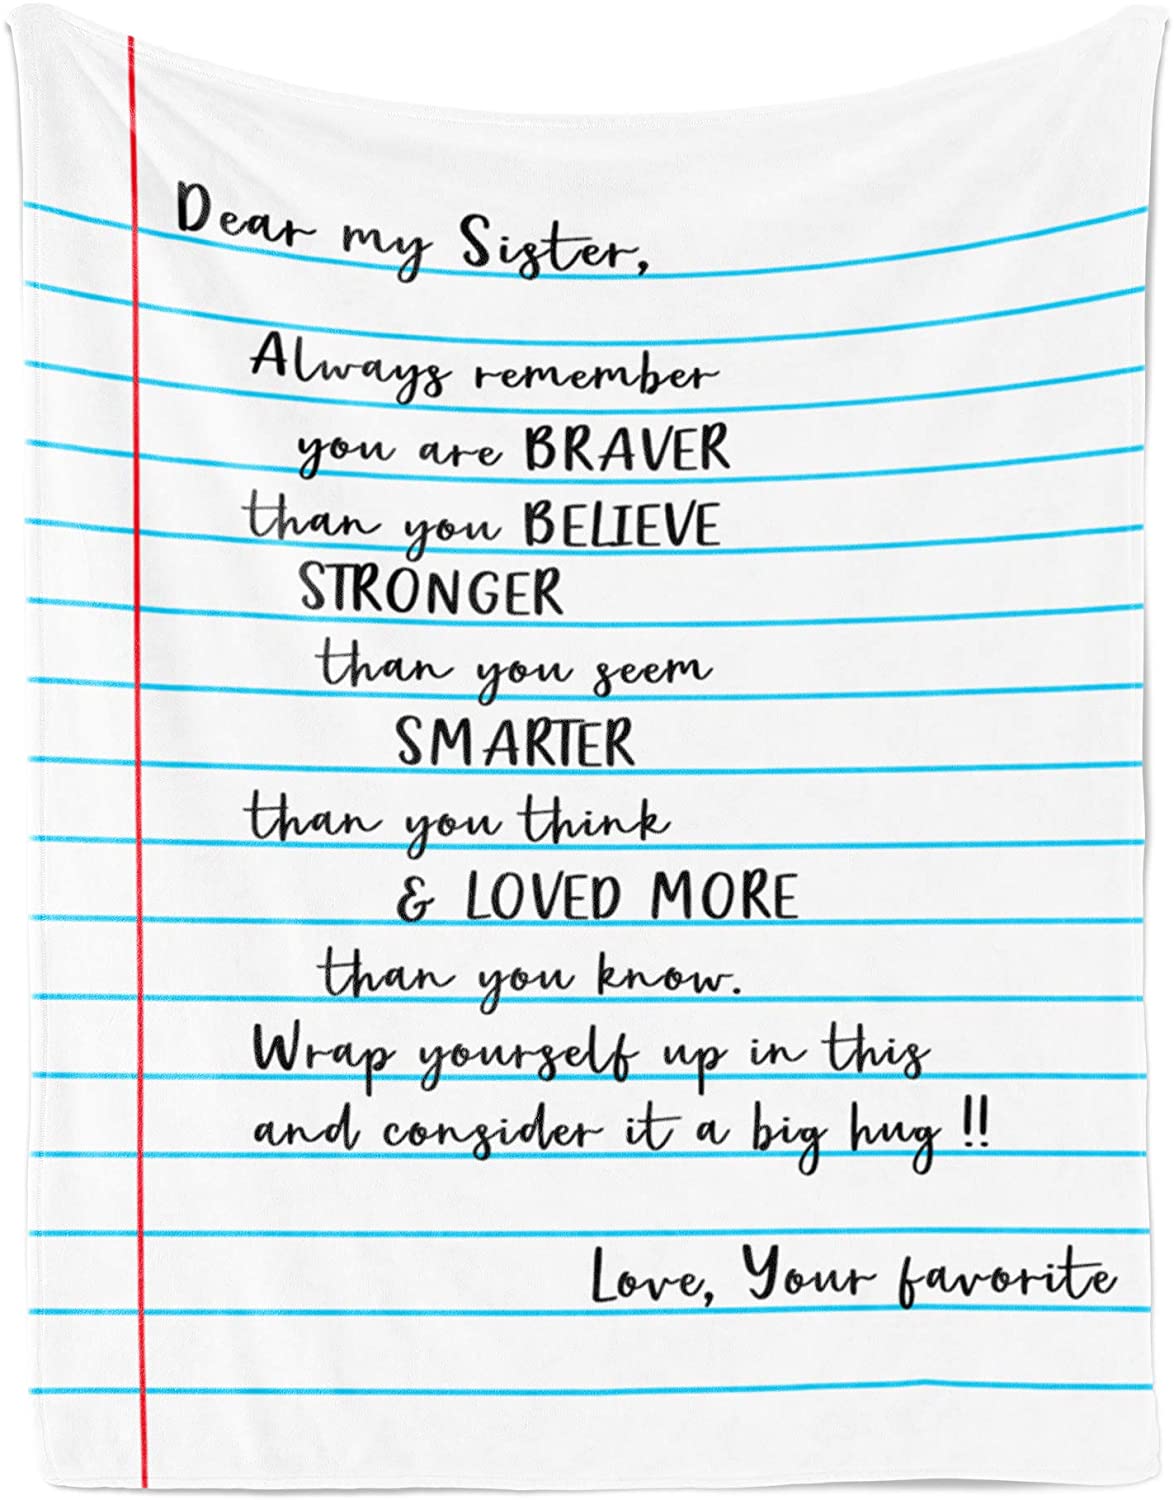 Dear my Sister,
Always remember
you are BRAVER
than you BELIEVE
STRONGER
than you seem
SMARTER
than you think
& LOVED MORE
than you know.
Wrap yourself up in this
and consider it a big hug !!
Love, Your favorite